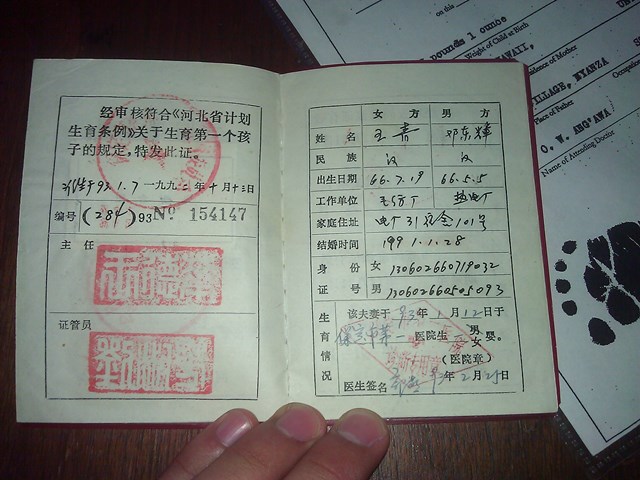 经审核符合《河北省计划
生育条例》关于生育第一个孩
子的规定,特发此证。
一九九二年十月十三日
编号 (284) 93 No 154147
主 任
证管员
女 方 男 方
姓 名 王青 邓东辉
民 族 汉 汉
出生日期 66.7.19 66.5.5
工作单位 热电厂
家庭住址 电厂31宿舍101号
结婚时间 1991.1.28
身 份 女 130602660719032
证 号 男 130602660505093
生育情况
该夫妻于93年1月12日于
保定市第一医院生男女婴。
(医院章)
医生签名 93年2月25日
on this
pounds 1 ounce
Weight of Child at Birth
HAWAII,
Residence of Mother
VILLAGE, NYANZA
Occupation
Place of Father
O. W. ANG'AWA
Name of Attending Doctor